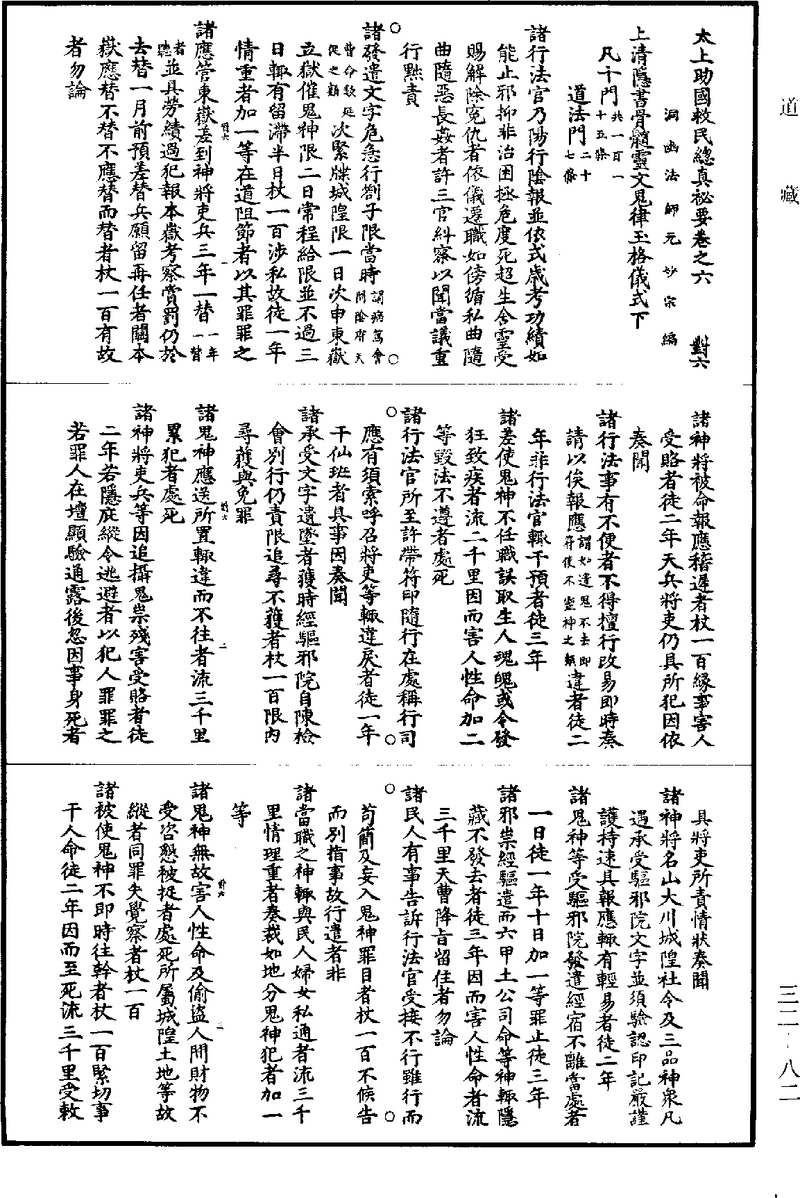 道藏
三二—八二
太上助國救民總真祕要卷之六　對六
洞幽法師元妙宗編
上清隱書骨髓靈文鬼律玉格儀式下
凡十門共一百一十五條
道法門二十七條
諸行法官乃陽行陰報並依式歲考功績如
能止邪抑非治困拯危度死超生含靈受
賜解除冤仇者依儀遷職如傍循私曲隨
曲隨惡長姦者許三官糾察以聞當議重
行黜責
諸發遣文字危急行劄子限當時謂病篤會問陰府天曹命救延促之類
次緊牒城隍限一日次申東嶽
立獄催鬼神限二日常程給限並不過三
日輒有留滯半日杖一百涉私故徒一年
情重者加一等在道阻節者以其罪罪之
諸應管東嶽差到神將吏兵三年一替一年一替者聽
並具勞績過犯報本嶽考察賞罰仍於
去替一月前預差替兵願留再任者關本
嶽應替不替不應替而替者杖一百有故
者勿論
諸神將被命報應稽遲者杖一百緣事害人
受賂者徒二年天兵將吏仍具所犯因依
奏聞
諸行法事有不便者不得擅行改易即時奏
請以俟報應謂如逢鬼不去即符使不靈神之類違者徒二
年非行法官輒干預者徒三年
諸差使鬼神不任職誤取生人魂魄或令發
狂致疾者流二千里因而害人性命加二
等毀法不遵者處死
諸行法官所至許帶符印隨行在處稱行司
應有須索呼召將吏等輒違戾者徒一年
干仙班者具事因奏聞
諸承受文字遺墜者獲時經驅邪院自陳檢
會別行仍責限追尋不獲者杖一百限內
尋獲與免罪
諸鬼神應送所置輒違而不往者流三千里
累犯者處死
諸神將吏兵等因追攝鬼祟殘害受賂者徒
二年若隱庇縱令逃避者以犯人罪罪之
若罪人在壇顯驗通露後忽因事身死者
具將吏所責情狀奏聞
諸神將名山大川城隍社令及三品神衆凡
遇承受驅邪院文字並須驗認印記嚴謹
護持速具報應輒有輕易者徒二年
諸鬼神等受驅邪院發遣經宿不離當處者
一日徒一年十日加一等罪止徒三年
諸邪祟經驅遣而六甲土公司命等神輒隱
藏不發去者徒三年因而害人性命者流
三千里天曹降旨留住者勿論
諸民人有事告訴行法官受接不行雖行而
苟簡及妄入鬼神罪目者杖一百不候告
而別指事故行遣者非
諸當職之神輒與民人婦女私通者流三千
里情理重者奏裁如地分鬼神犯者加一
等
諸鬼神無故害人性命及偷盜人間財物不
受咨懇被捉者處死所屬城隍土地等故
縱者同罪失覺察者杖一百
諸被使鬼神不即時往幹者杖一百緊切事
干人命徒二年因而至死流三千里受敕